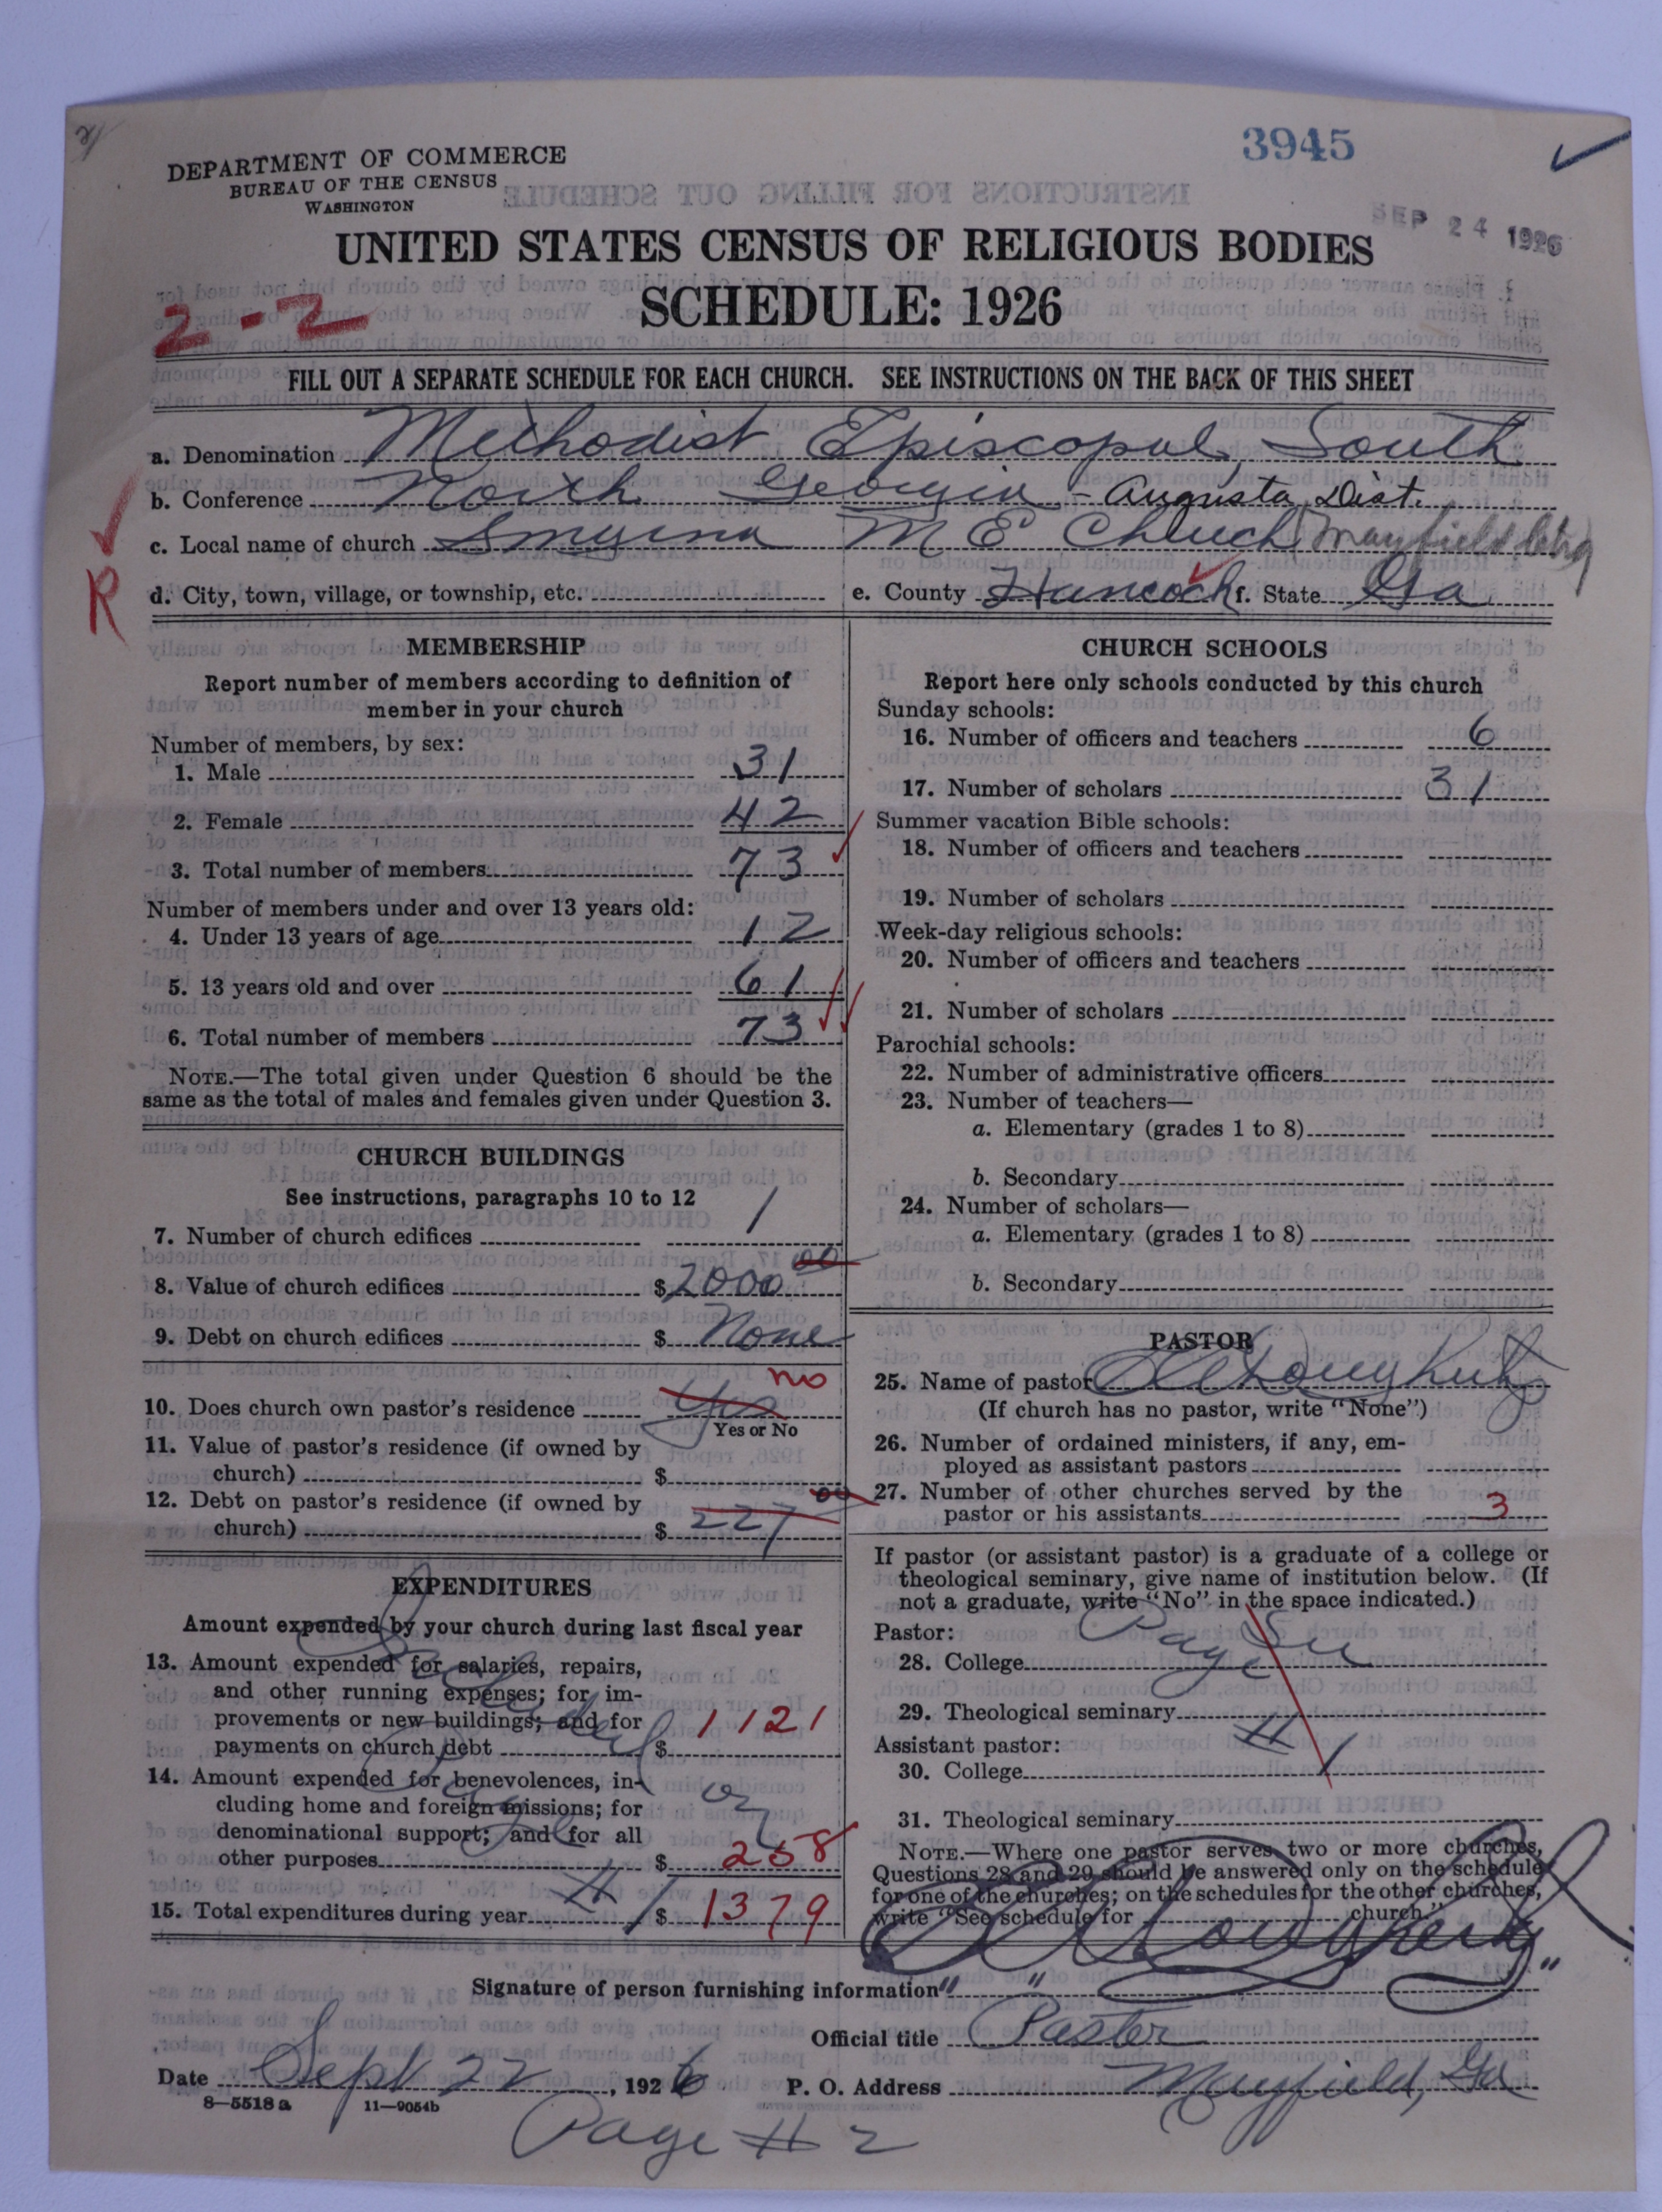 3945
DEPARTMENT OF COMMERCE
BUREAU OF THE CENSUS
WASHINGTON
SEP 24 1926
UNITED STATES CENSUS OF RELIGIOUS BODIES
SCHEDULE: 1926
2-2
FILL OUT A SEPARATE SCHEDULE FOR EACH CHURCH. SEE INSTRUCTIONS ON THE BACK OF THIS SHEET
a. Denomination Methodist Episcopal, South
b. Conference North Georgia - Augusta Dist.
c. Local name of church Smyrna M E Church Mayfield
R
d. City, town, village, or township, etc. e. County Hancock f. State Ga
MEMBERSHIP
Report number of members according to definition of
member in your church
Number of members, by sex:
1. Male 31
2. Female 42
3. Total number of members 73
Number of members under and over 13 years old:
4. Under 13 years of age 12
5. 13 years old and over 61
6. Total number of members 73
NOTE.—The total given under Question 6 should be the
same as the total of males and females given under Question 3.
CHURCH BUILDINGS
See instructions, paragraphs 10 to 12
7. Number of church edifices 1
8. Value of church edifices $ 2000 00
9. Debt on church edifices $ None
10. Does church own pastor's residence Yes no
Yes or No
11. Value of pastor's residence (if owned by
church) $
12. Debt on pastor's residence (if owned by
church) $ 227 00
EXPENDITURES
Amount expended by your church during last fiscal year
13. Amount expended for salaries, repairs,
and other running expenses; for im-
provements or new buildings; and for
payments on church debt $ 1121
14. Amount expended for benevolences, in-
cluding home and foreign missions; for
denominational support; and for all
other purposes $ 258
15. Total expenditures during year $ 1379
# 1
CHURCH SCHOOLS
Report here only schools conducted by this church
Sunday schools:
16. Number of officers and teachers 6
17. Number of scholars 31
Summer vacation Bible schools:
18. Number of officers and teachers
19. Number of scholars
Week-day religious schools:
20. Number of officers and teachers
21. Number of scholars
Parochial schools:
22. Number of administrative officers
23. Number of teachers—
a. Elementary (grades 1 to 8)
b. Secondary
24. Number of scholars—
a. Elementary (grades 1 to 8)
b. Secondary
PASTOR
25. Name of pastor
(If church has no pastor, write "None")
26. Number of ordained ministers, if any, em-
ployed as assistant pastors
27. Number of other churches served by the
pastor or his assistants 3
If pastor (or assistant pastor) is a graduate of a college or
theological seminary, give name of institution below. (If
not a graduate, write "No" in the space indicated.)
Pastor:
28. College
29. Theological seminary
# 1
Assistant pastor:
30. College
31. Theological seminary
NOTE.—Where one pastor serves two or more churches,
Questions 28 and 29 should be answered only on the schedule
for one of the churches; on the schedules for the other churches,
write "See schedule for church."
Signature of person furnishing information
Official title Pastor
Date Sept 22, 1926 P. O. Address Mayfield, Ga
8—5518 a 11—9054b
Page # 2